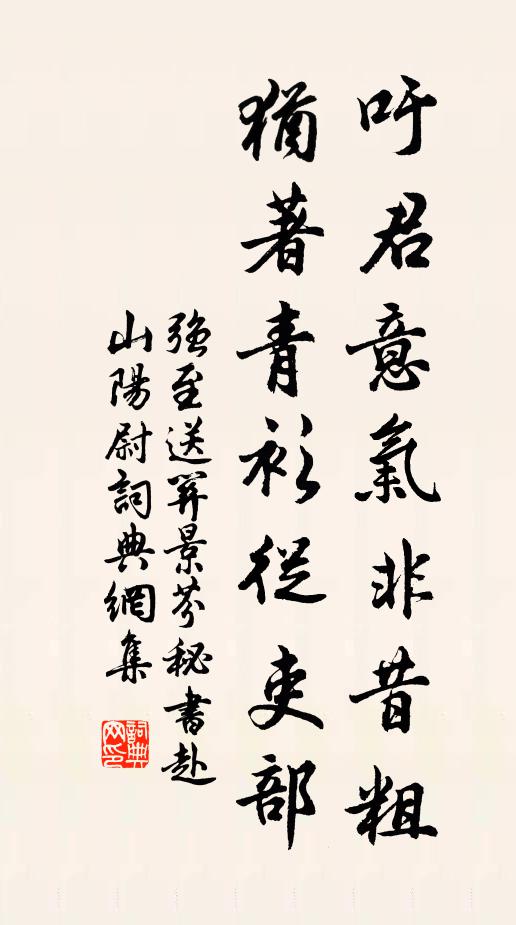 吁君意氣非昔粗
猶著青衫從吏部
強至送羿景芬秘書赴
山陽尉詞典網集
詞典
网印